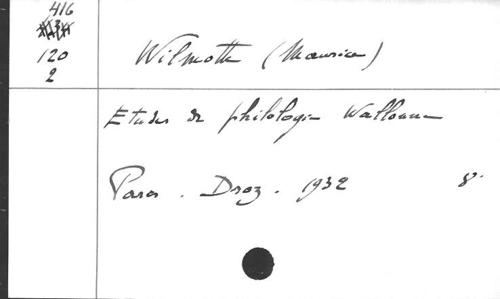 416
120
2
Wilmotte (Maurice)
Etudes de philologie Wallonne
Paris. Droz. 1932 8°